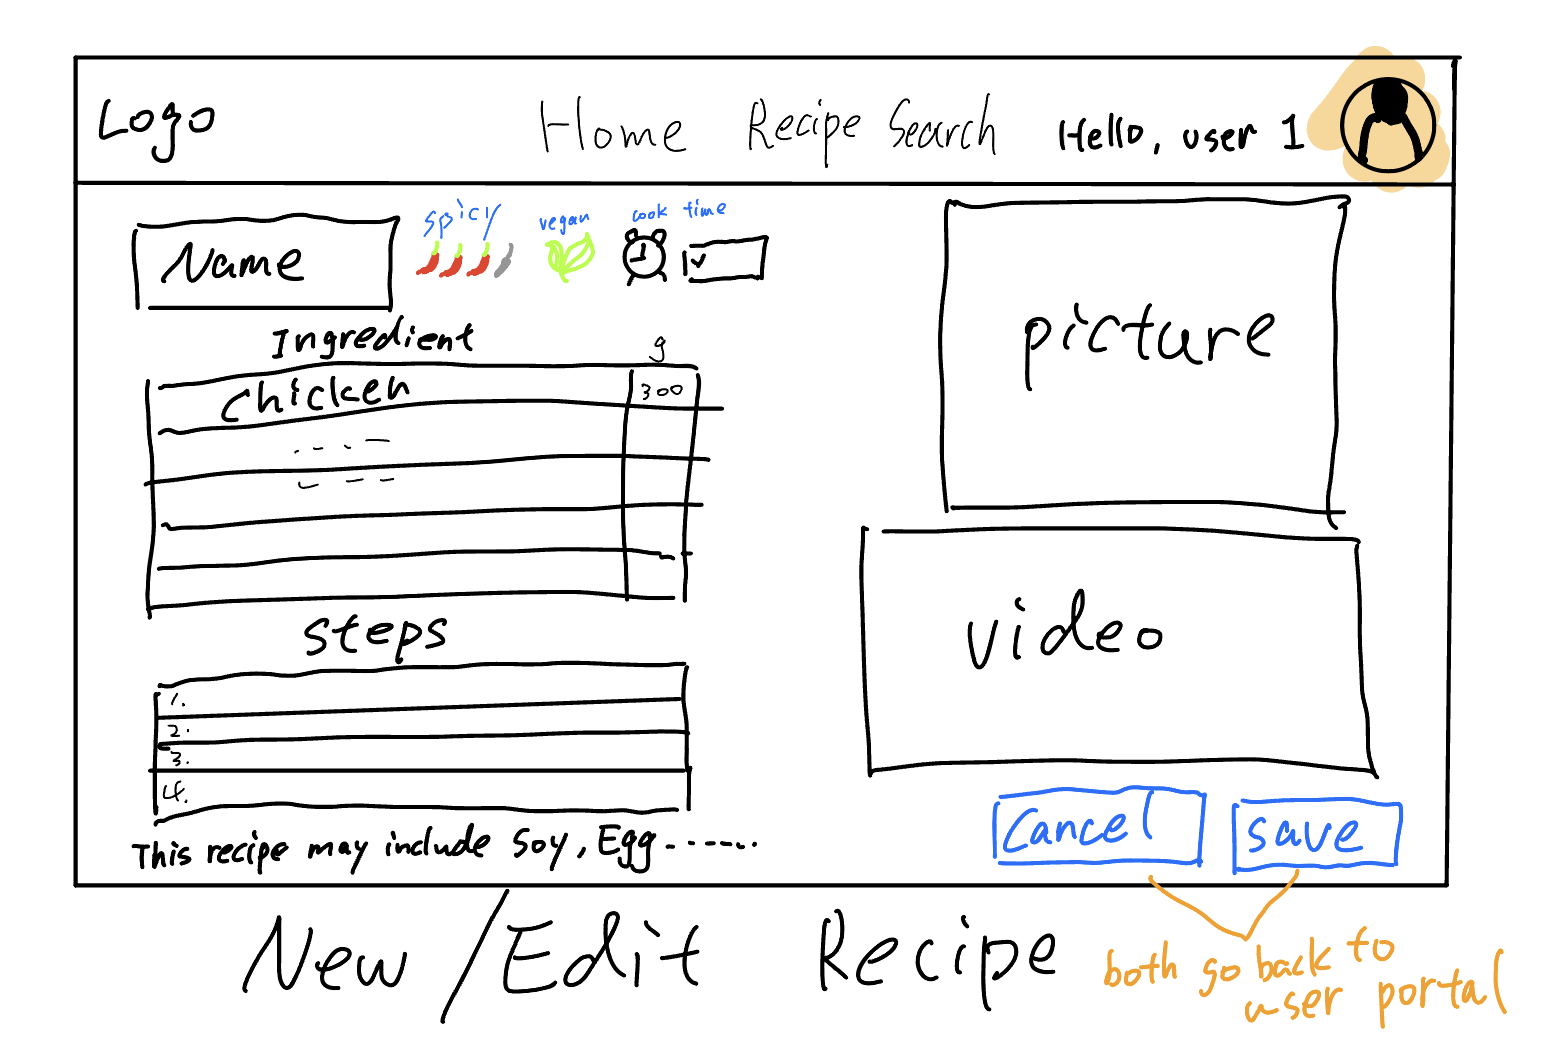 Logo
Home
Recipe Search
Hello, user 1
Name
spicy
vegan
cook time
Ingredient
g
chicken
300
steps
1.
2.
3.
4.
This recipe may include soy, Egg ......
picture
video
Cancel
save
New/Edit Recipe
both go back to
user portal